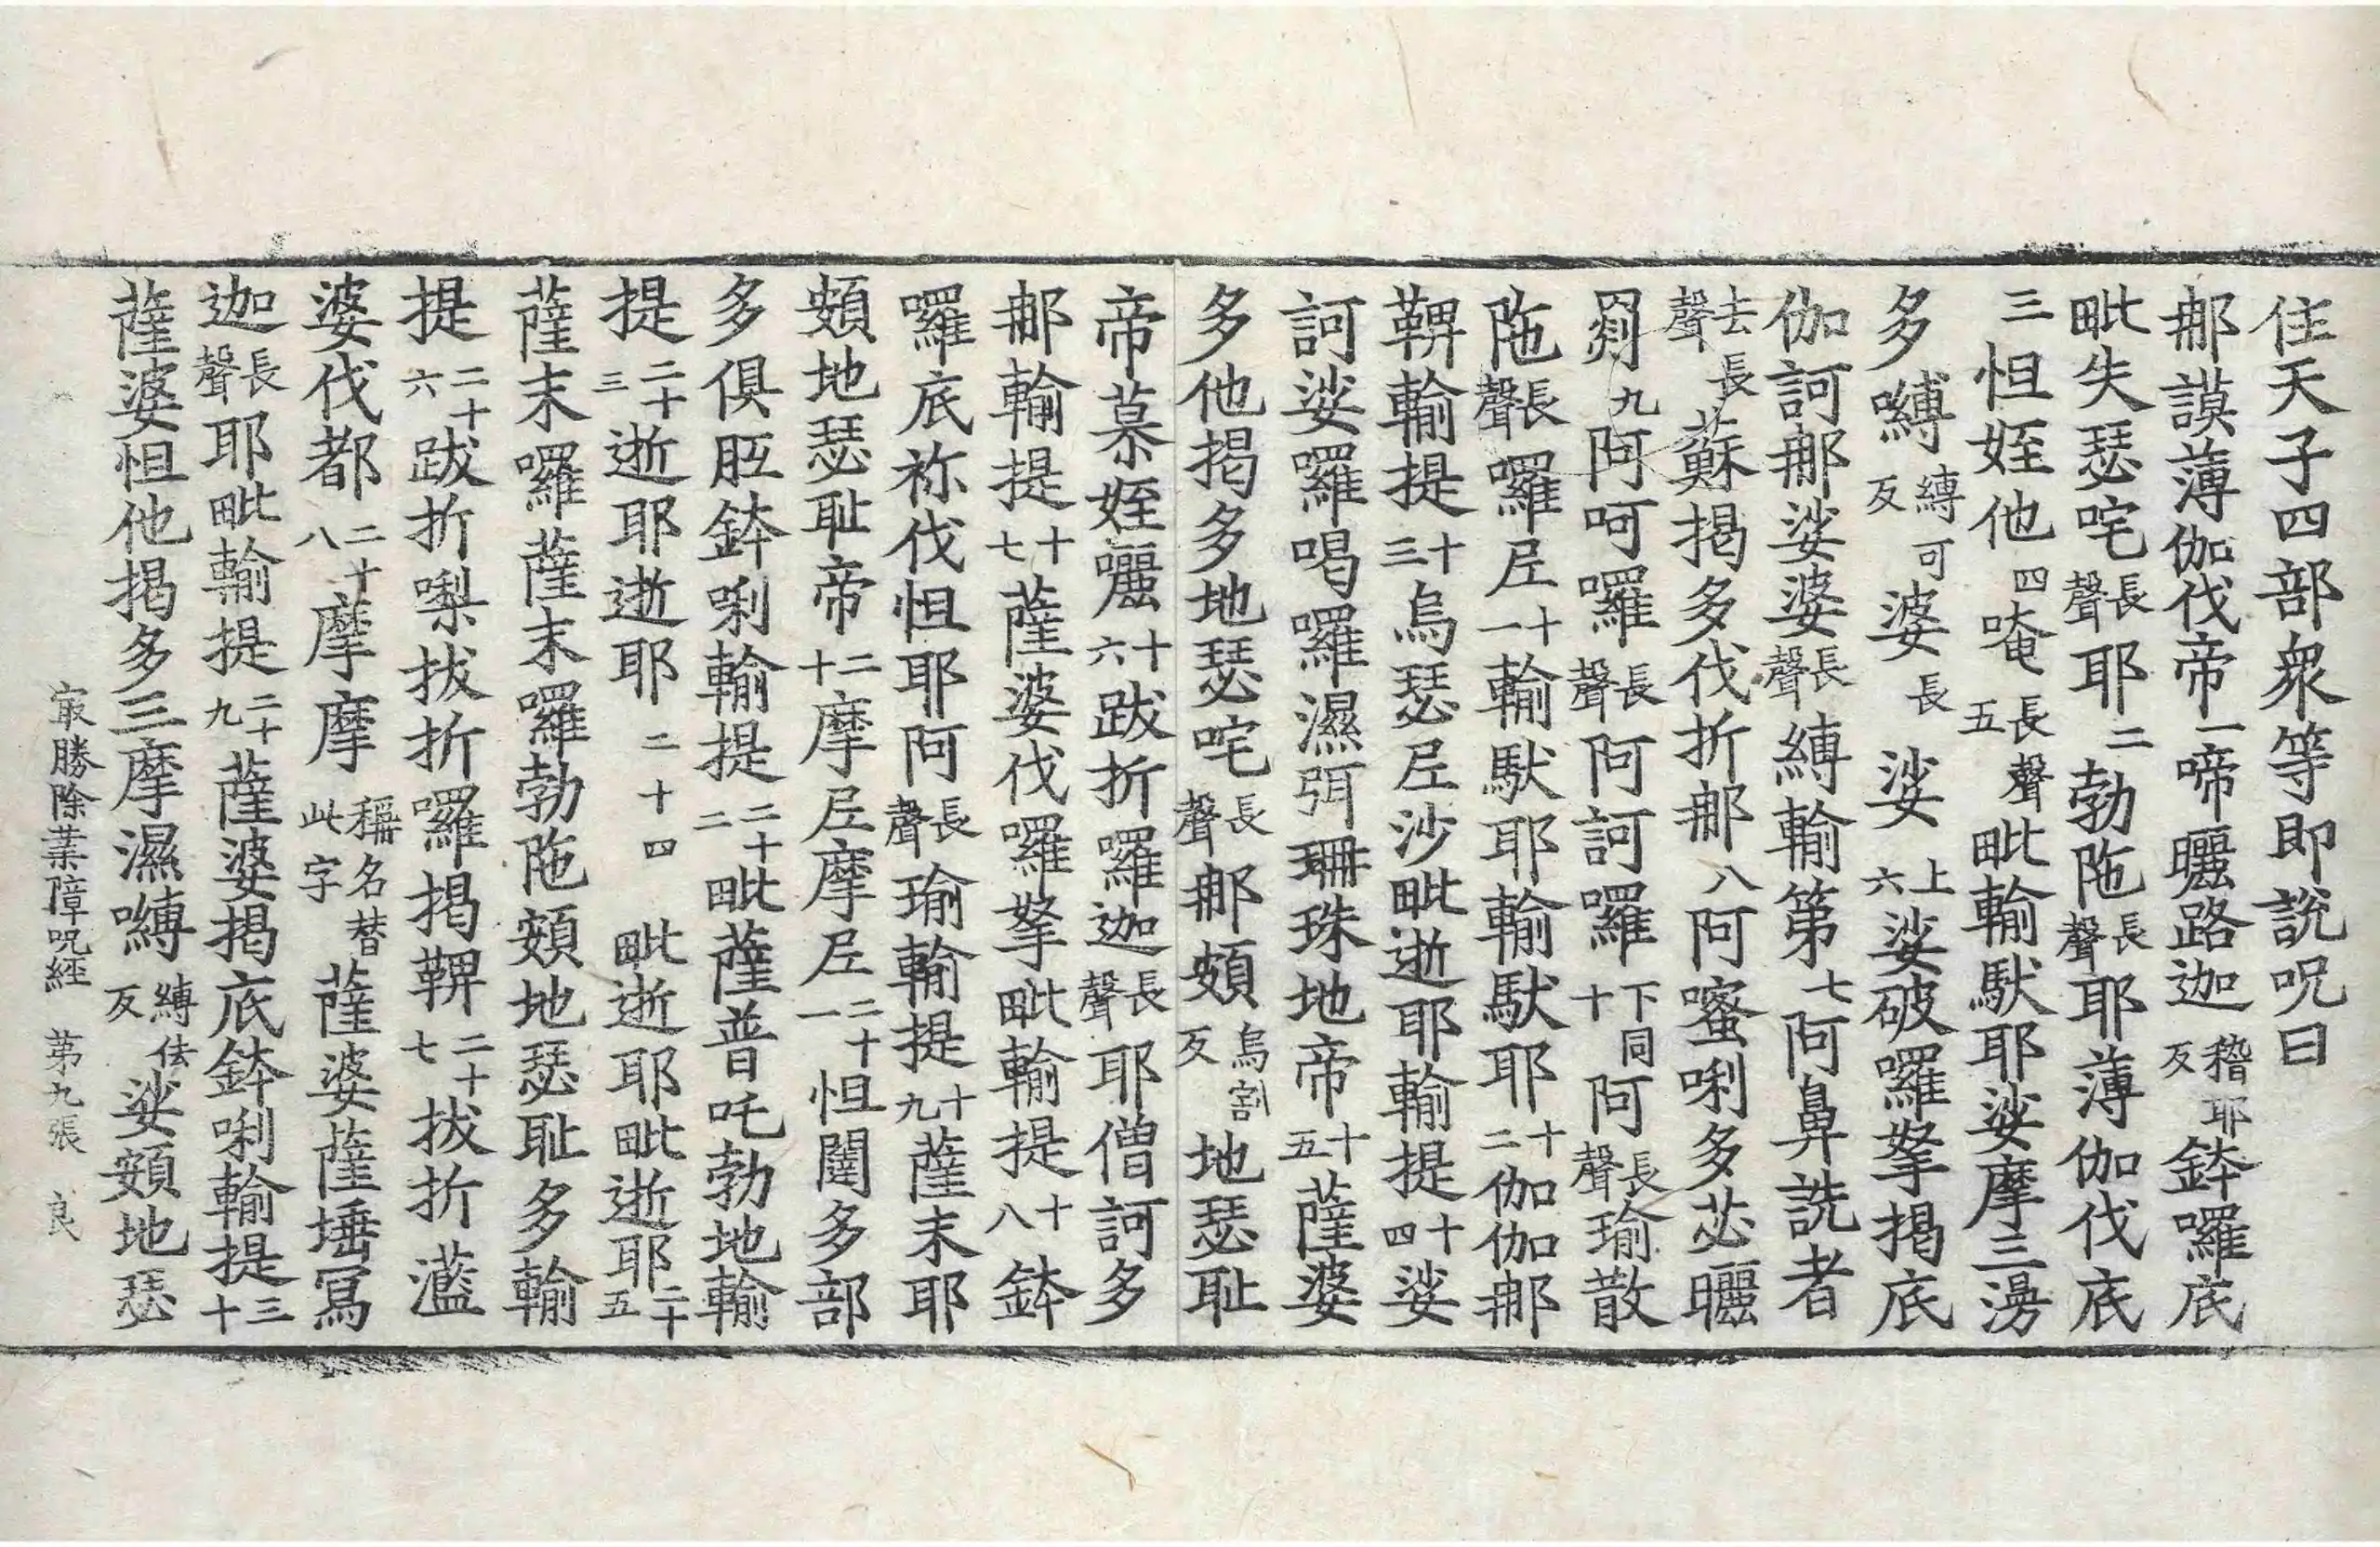 住天子四部衆等即說呪曰
那謨薄伽伐帝一啼㘑路迦稽耶反鉢囉底
毗失瑟咤長聲耶二勃陁長聲耶薄伽伐底
三怛姪他四唵長聲五毗輸馱耶娑摩三湯
多嚩縛可反婆長娑上六娑破囉拏揭底
伽訶那娑婆長聲縛輸第七阿鼻詵者
去聲長蘇揭多伐折那八阿蜜唎多苾曬
罽九阿呵囉長聲阿訶囉下同十阿長聲瑜散
陁長聲囉尼十一輸馱耶輸馱耶十二伽伽那
鞞輸提十三烏瑟尼沙毗逝耶輸提十四娑
訶娑囉喝囉濕弭珊珠地帝十五薩婆
多他揭多地瑟咤長聲那頞烏割反地瑟耻
帝慕姪囇十六跋折囉迦長聲耶僧訶多
那輸提十七薩婆伐囉拏毗輸提十八鉢
囉底祢伐怛耶阿長聲瑜輸提十九薩末耶
頞地瑟耻帝二十摩尼摩尼二十一怛闥多部
多俱胝鉢唎輸提二十二毗薩普吒勃地輸
提二十三逝耶逝耶二十四毗逝耶毗逝耶二十五
薩末囉薩末囉勃陁頞地瑟耻多輸
提二十六跋折㗚拔折囉揭鞞二十七拔折灆
婆伐都二十八摩摩稱名替此字薩婆薩埵冩
迦長聲耶毗輸提二十九薩婆揭底鉢唎輸提三十
薩婆怛他揭多三摩濕嚩縛佉反娑頞地瑟
㝡勝除業障呪經 第九張 良